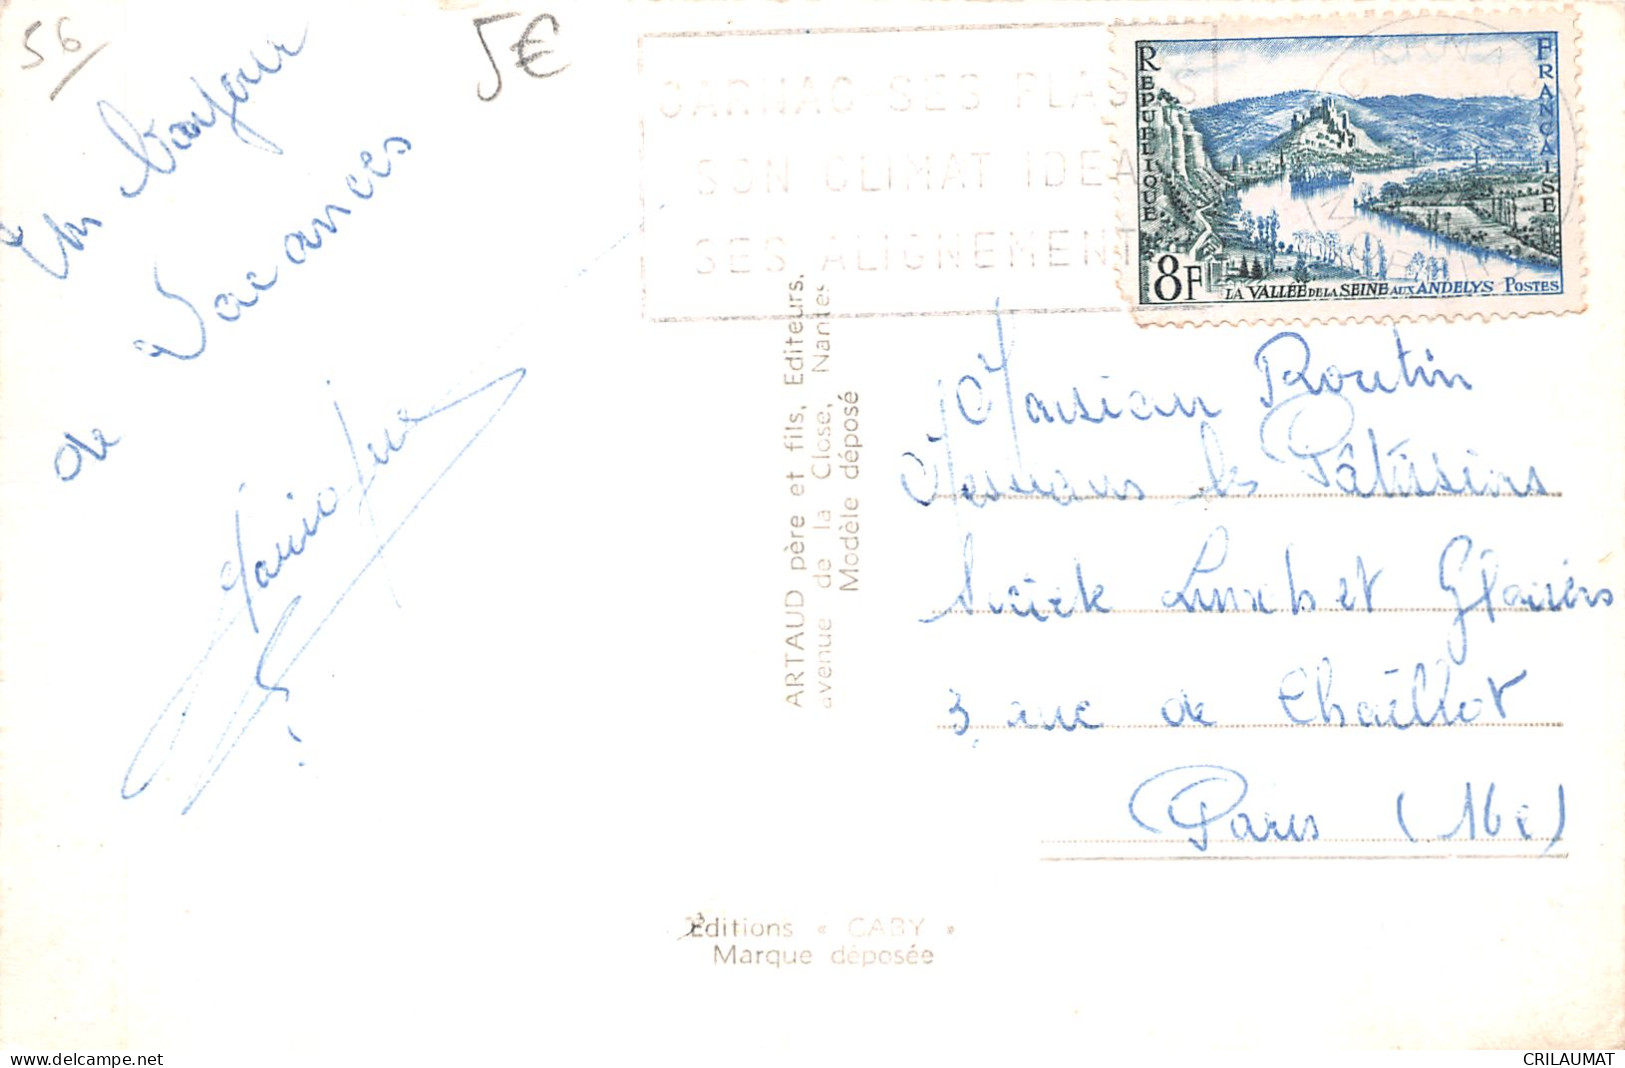 56
5€
Un bonjour
de
Vacances
CARNAC SES PLAGES
SON CLIMAT IDEA
SES ALIGNEMENT
REPUBLIQUE
FRANCAISE
8F
LA VALLÉE DE LA SEINE AUX ANDELYS POSTES
ARTAUD père et fils, Editeurs.
avenue de la Close, Nantes
Modèle déposé
Maison Routin
Messieurs les Pâtissiers
et Glaciers
3 rue de Chaillot
Paris (16e)
Editions « GABY »
Marque déposée
www.delcampe.net
CRILAUMAT